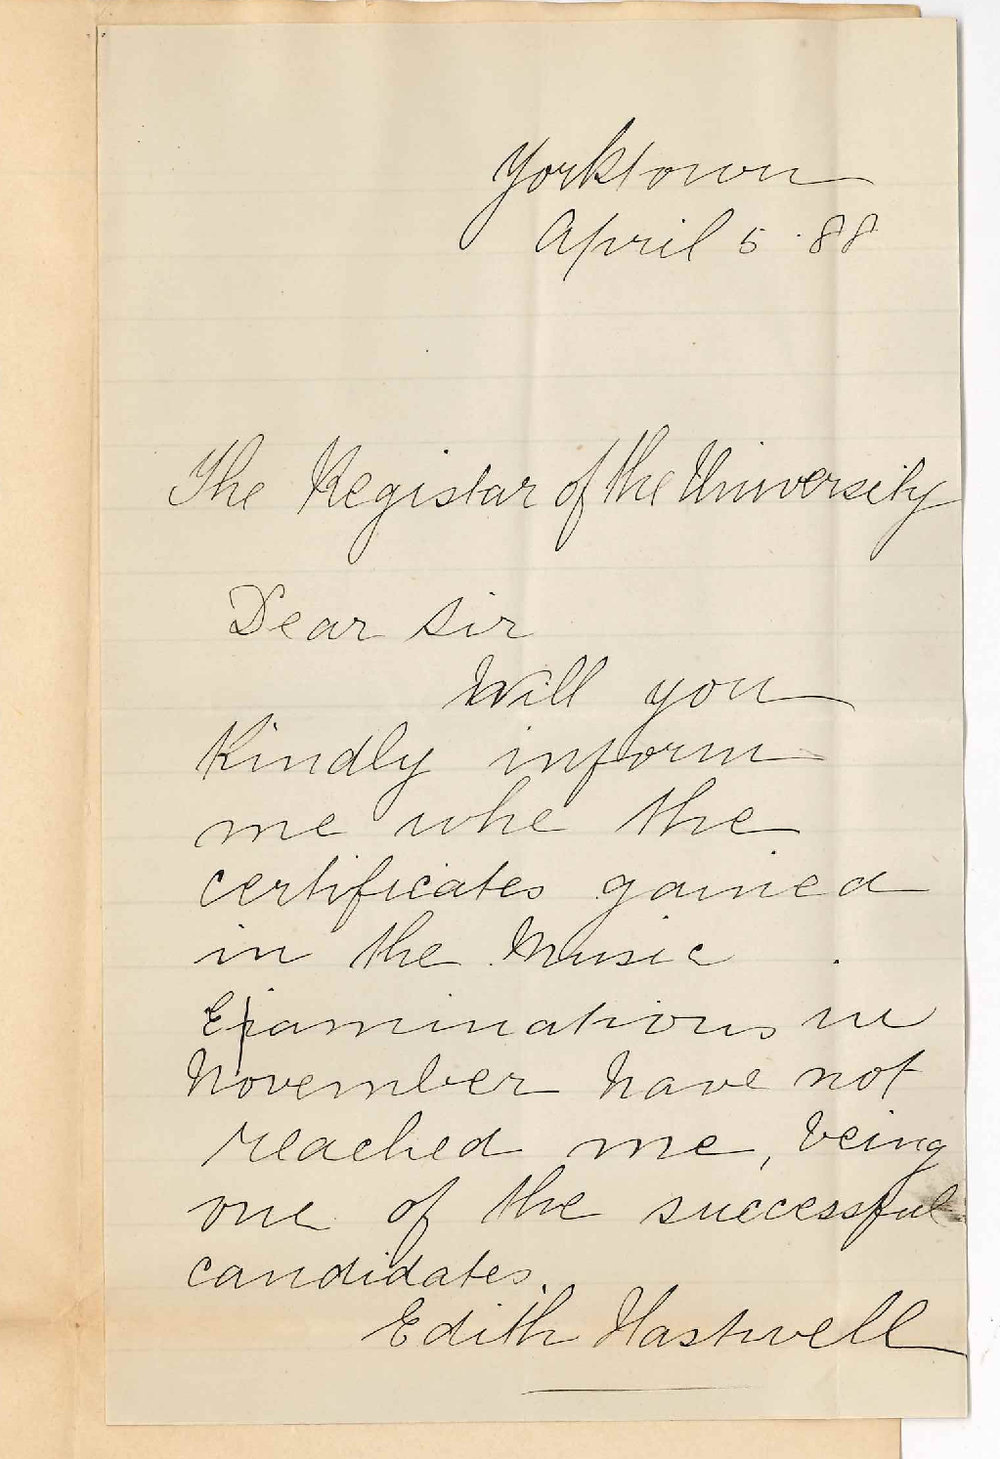 Yorktown
April 5 .88
The Registar of the University
Dear Sir
Will you
Kindly inform
me whe the
certificates gained
in the Music
Examinations in
November have not
reached me, being
one of the successful
candidates.
Edith Hastwell